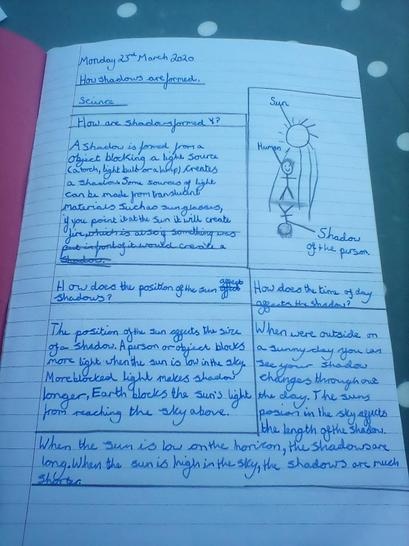 Monday 23rd March 2020
How shadows are formed.
Science
How are shadows formed?
A shadow is formed from a
object blocking a light source
(a torch, light bulb or a lamp) creates
a shadow. Some sources of light
can be made from translucent
materials Such as sunglasses,
if you point it at the sun it will create
fire, which is also if something was
put in font of it would create a
shadow.
Sun
Human
Shadow
of the person
How does the position of the sun affect
shadows?
The position of the sun affects the size
of a shadow. A person or object blocks
more light when the sun is low in the sky.
More blocked light makes shadow
longer, Earth blocks the sun's light
from reaching the sky above.
How does the time of day
affects the shadow?
When were outside on
a sunny day you can
see your shadow
changes throughout
the day. The suns
posion in the sky affects
the length of the shadow.
When the sun is low on the horizon, the shadows are
long. When the sun is high in the sky, the shadows are much
shorter.